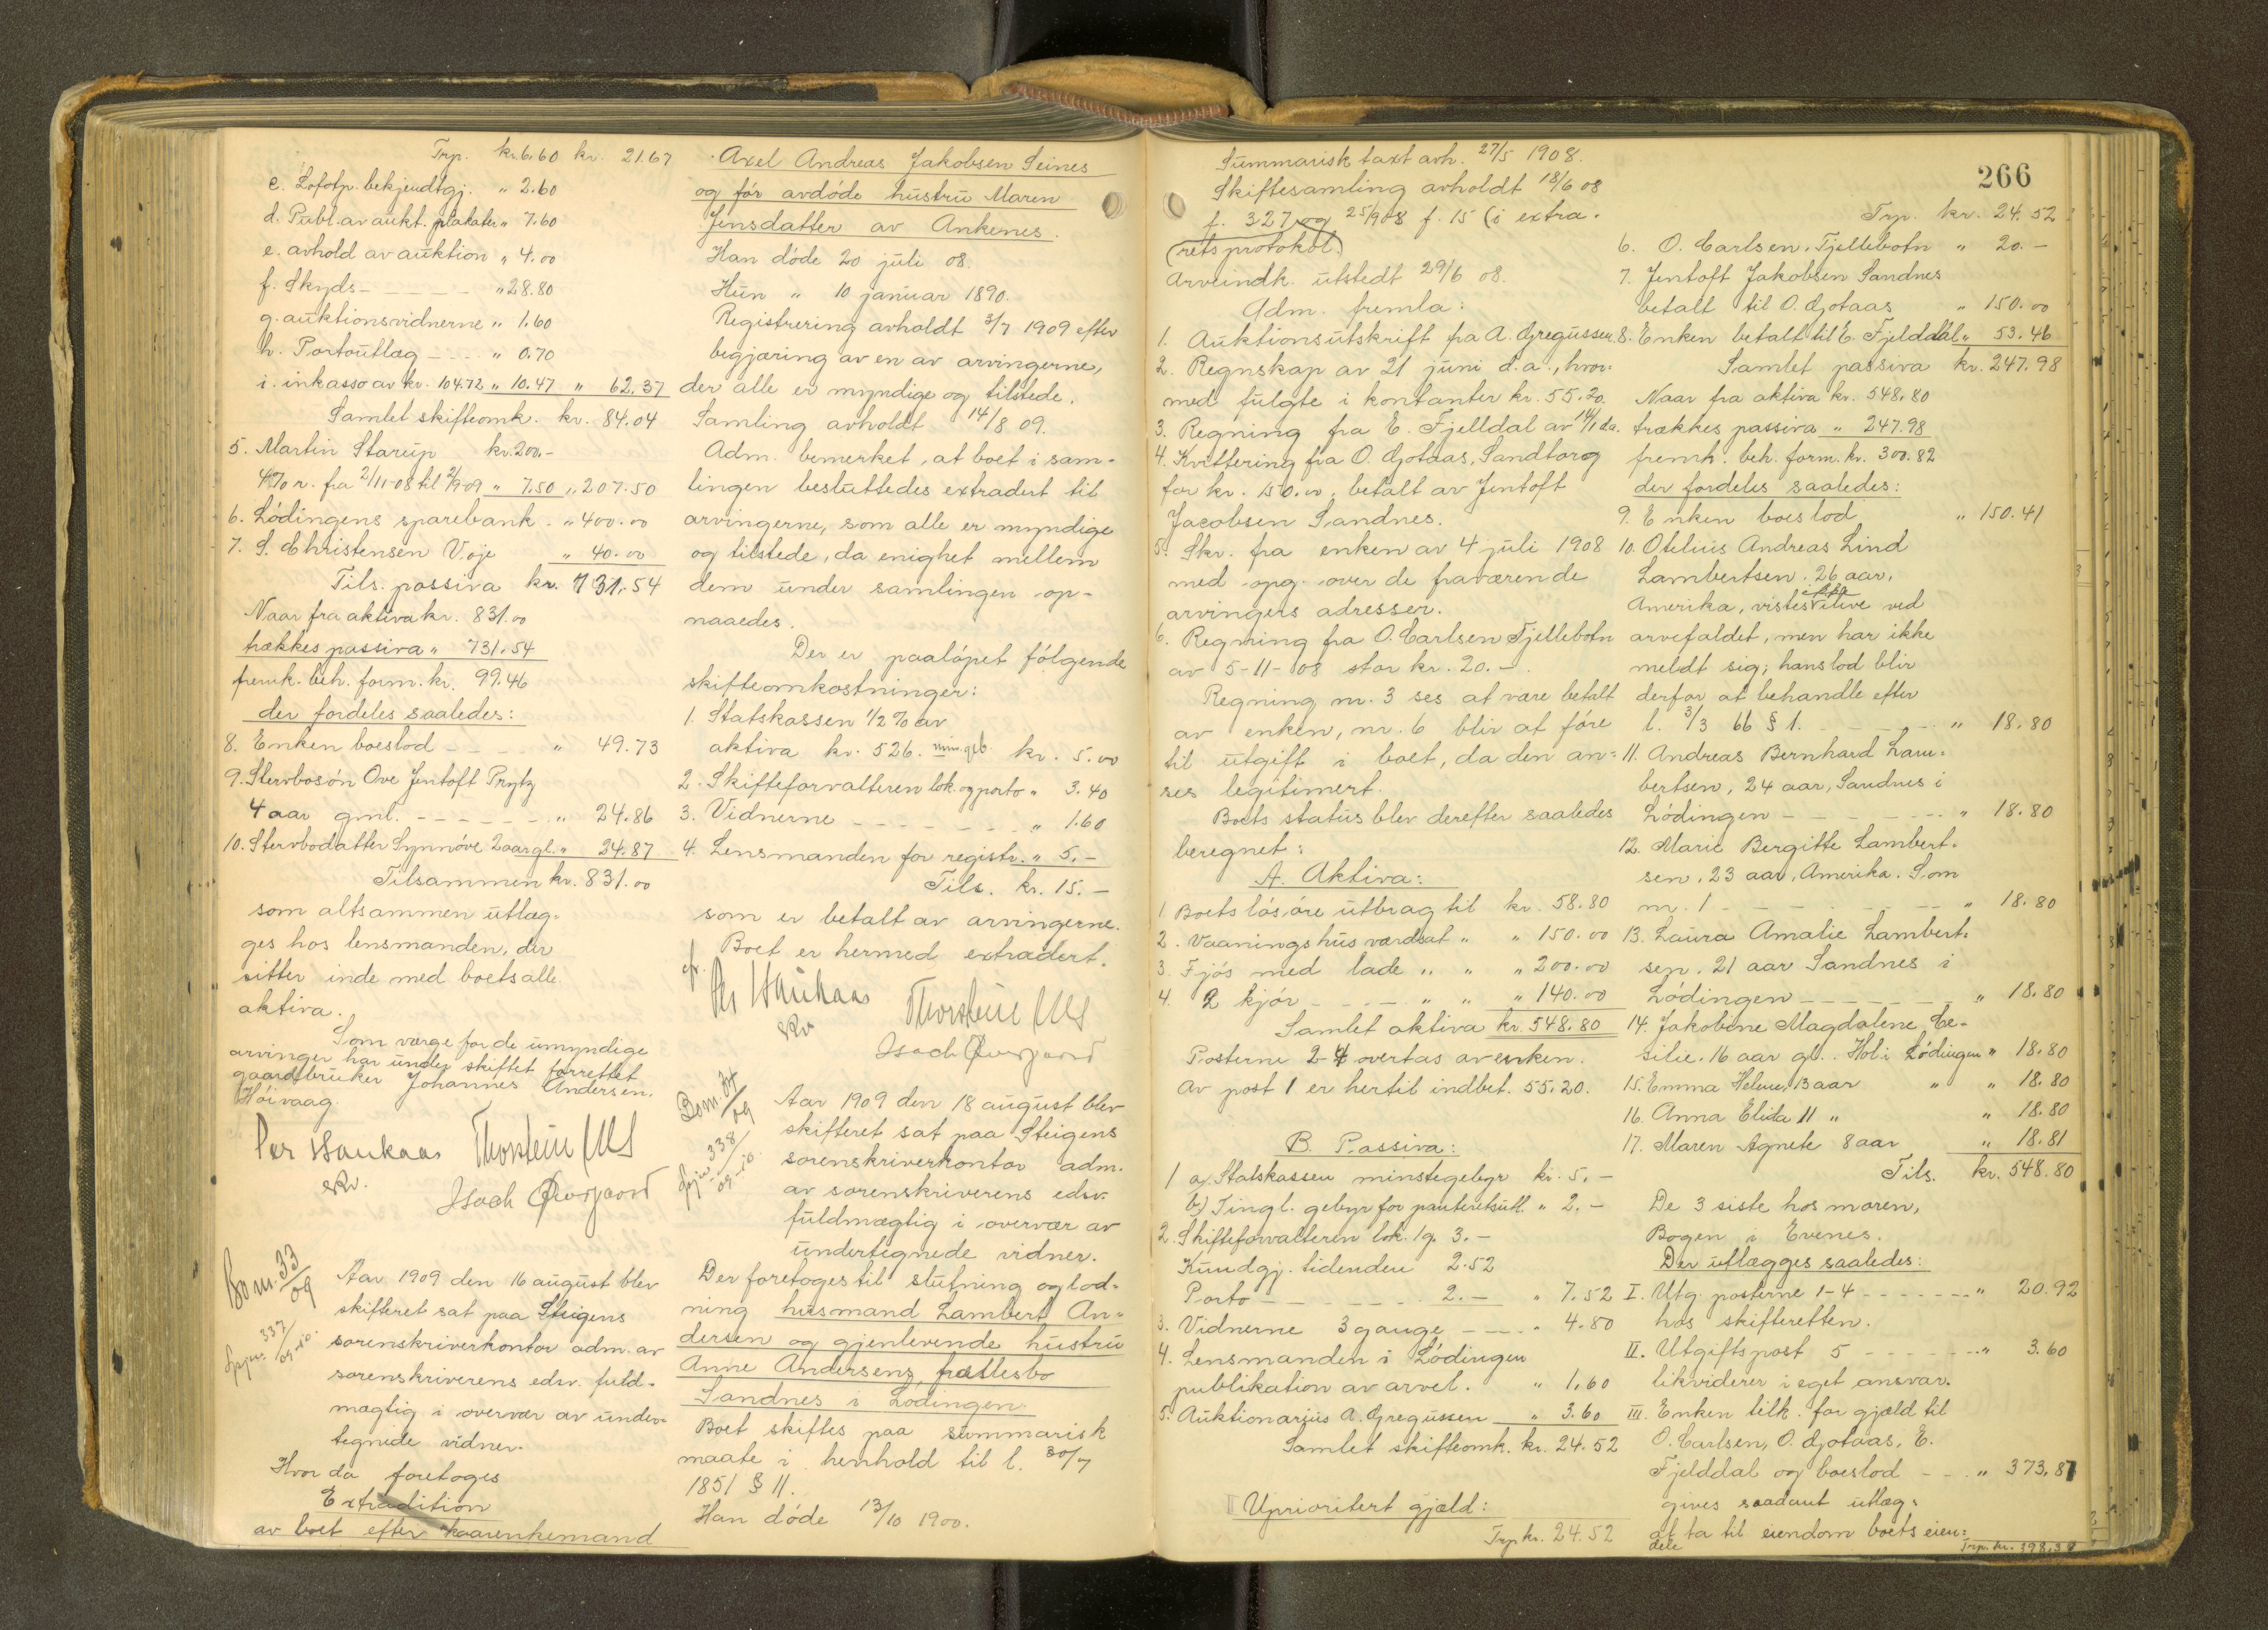 Trp. kr. 6.60 kr. 21.67
c. Lofotp. bekjendtgj. " 2.60
d. Publ. av aukt. plakater " 7.60
e. avhold av auktion " 4.00
f. Skyds - - - - - " 28.80
g. auktionsvidnerne " 1.60
h. Portoutlæg - - - - " 0.70
i. inkasso av kr. 104.72 " 10.47 " 62.37
Samlet skifteomk. kr. 84.04
5. Martin Starup kr. 200.-
4% r. fra 2/11-08 til 2/9-09 " 7.50 " 207.50
6. Lódingens sparebank - " 400.00
7. S. Christensen Voje " 40.00
Tils. passiva kr. 731.54
Naar fra aktiva kr. 831.00
trækkes passiva " 731.54
fremk. beh. form. kr. 99.46
der fordeles saaledes:
8. Enken boeslod - - - - " 49.73
9. Stervbosön Ove Jentoft Prytz
4 aar gml. - - - - - - " 24.86
10. Stervbodatter Synnóve 2 aar gl. " 24.87
Tilsammen kr. 831.00
som altsammen utlæg-
ges hos lensmanden, der
sitter inde med boets alle
aktiva.
Som værge for de umyndige
arvinger har under skiftet forrettet
gaardbruker Johannes Andersen,
Hóivaag.
Per Haukaas
skr.
Isach Overgaard
Bo nr. 33/09
337/09-10.
Aar 1909 den 16 august blev
skifteret sat paa Steigens
sorenskriverkontor adm. av
sorenskriverens edsv. fuld-
mægtig i overvær av under-
tegnede vidner.
Hvor da foretoges
Extradition
av boet efter kaarenkemand
Axel Andreas Jakobsen Seines
og fór avdóde hustru Maren
Jensdatter av Ankenes.
Han dóde 20 juli 08.
Hun " 10 januar 1890.
Registrering avholdt 3/7 1909 efter
begjæring av en av arvingerne,
der alle er myndige og tilstede.
Samling avholdt 14/8 09.
Adm. bemerket, at boet i sam-
lingen besluttedes extradert til
arvingerne, som alle er myndige
og tilstede, da enighet mellem
dem under samlingen op-
naaedes.
Der er paalópet fólgende
skifteomkostninger:
1. Statskassen 1/2 % av
aktiva kr. 526. min. geb. kr. 5.00
2. Skifteforvalteren lok. og porto " 3.40
3. Vidnerne - - - - - - - " 1.60
4. Lensmanden for registr. " 5.-
Tils. kr. 15.-
som er betalt av arvingerne.
Boet er hermed extradert.
Per Haukaas
skr
Isach Overgaard
338/09-10.
Aar 1909 den 18 august blev
skifteret sat paa Steigens
sorenskriverkontor adm.
av sorenskriverens edsv.
fuldmægtig i overvær av
undertegnede vidner.
Der foretoges til slutning og lod-
ning husmand Lambert An-
dersen og gjenlevende hustru
Anne Andersens, fællesbo
Sandnes i Lódingen.
Boet skiftes paa summarisk
maate i henhold til l. 30/7
1851 § 11.
Han dóde 13/10 1900.
266
Summarisk taxt avh. 27/5 1908.
Skiftesamling avholdt 18/6 08
f. 327 og 25/9 08 f. 15 (i extra-
(retsprotokol.)
Arveindk. utstedt 29/6 08.
Adm. fremla:
1. Auktionsutskrift fra A. Gregussen.
2. Regnskap av 21 juni d.a., hvor-
med fulgte i kontanter kr. 55.20.
3. Regning fra E. Fjelldal av 14/1 d.a.
4. Kvittering fra O. Gotaas, Sandtorg
for kr. 150.00, betalt av Jentoft
Jacobsen Sandnes.
5. Skr. fra enken av 4 juli 1908
med opg. over de fraværende
arvingers adresser.
6. Regning fra O. Carlsen Fjellebotn
av 5-11-08 stor kr. 20.-.
Regning nr. 3 ses at være betalt
av enken, nr. 6 blir at fóre
til utgift i boet, da den an-
ses legitimert.
Boets status blev derefter saaledes
beregnet:
A. Aktiva:
1. Boets lósóre utbrag til kr. 58.80
2. Vaaningshus værdsat " " 150.00
3. Fjós med lade " " " 200.00
4. 2 kjór - - - - " " " 140.00
Samlet aktiva kr. 548.80
Posterne 2-4 overtas av enken.
Av post 1 er hertil indbet. 55.20.
B. Passiva:
1 a) Statskassen minstegebyr kr. 5.-
b) Tingl. gebyr for panteretsutl. " 2.-
2. Skifteforvalteren lok. 1 g. 3.-
Kundgj. tidenden 2.52
Porto - - - - - - - 2.- " 7.52
3. Vidnerne 3 gange - - - " 4.80
4. Lensmanden i Lódingen
publikation av arvel. " 1.60
5. Auktionarius A. Gregussen " 3.60
Samlet skifteomk. kr. 24.52
Uprioritert gjæld:
Trp kr. 24.52
Trp. kr. 24.52
6. O. Carlsen, Fjellebotn " 20.-
7. Jentoft Jakobsen Sandnes
betalt til O. Gotaas " 150.00
8. Enken betalt til E. Fjelddal " 53.46
Samlet passiva kr. 247.98
Naar fra aktiva kr. 548.80
trækkes passiva " 247.98
fremk. beh. form. kr. 300.82
der fordeles saaledes:
9. Enken boeslod " 150.41
10. Otelius Andreas Lind
Lambertsen, 26 aar,
Amerika, vistes ikke ilive ved
arvefaldet, men har ikke
meldt sig; hans lod blir
derfor at behandle efter
l. 3/3 66 § 1. - - - - - - " 18.80
11. Andreas Bernhard Lam-
bertsen, 24 aar, Sandnes i
Lódingen - - - - - - - " 18.80
12. Marie Bergitte Lambert-
sen, 23 aar, Amerika. Som
nr. 1 - - - - - - - - - " 18.80
13. Laura Amalie Lambert-
sen, 21 aar Sandnes i
Lódingen - - - - - - - " 18.80
14. Jakobine Magdalene Ce-
silie, 16 aar gl. Hol i Lódingen " 18.80
15. Emma Helene, 13 aar " " 18.80
16. Anna Elida 11 " " 18.80
17. Maren Agnete 8 aar " 18.81
Tils. kr. 548.80
De 3 siste hos moren,
Bogen i Evenes.
Der utlægges saaledes:
I. Utg. posterne 1-4 - - - - - - - " 20.92
hos skifteretten.
II. Utgiftspost 5 - - - - - - - " 3.60
likviderer i eget ansvar.
III. Enken tilk. for gjæld til
O. Carlsen, O. Gotaas, E.
Fjelddal og boeslod - - - " 373.87
gives saadant utlæg:
at ta til eiendom boets eien-
dele
Trp. kr. 398.39